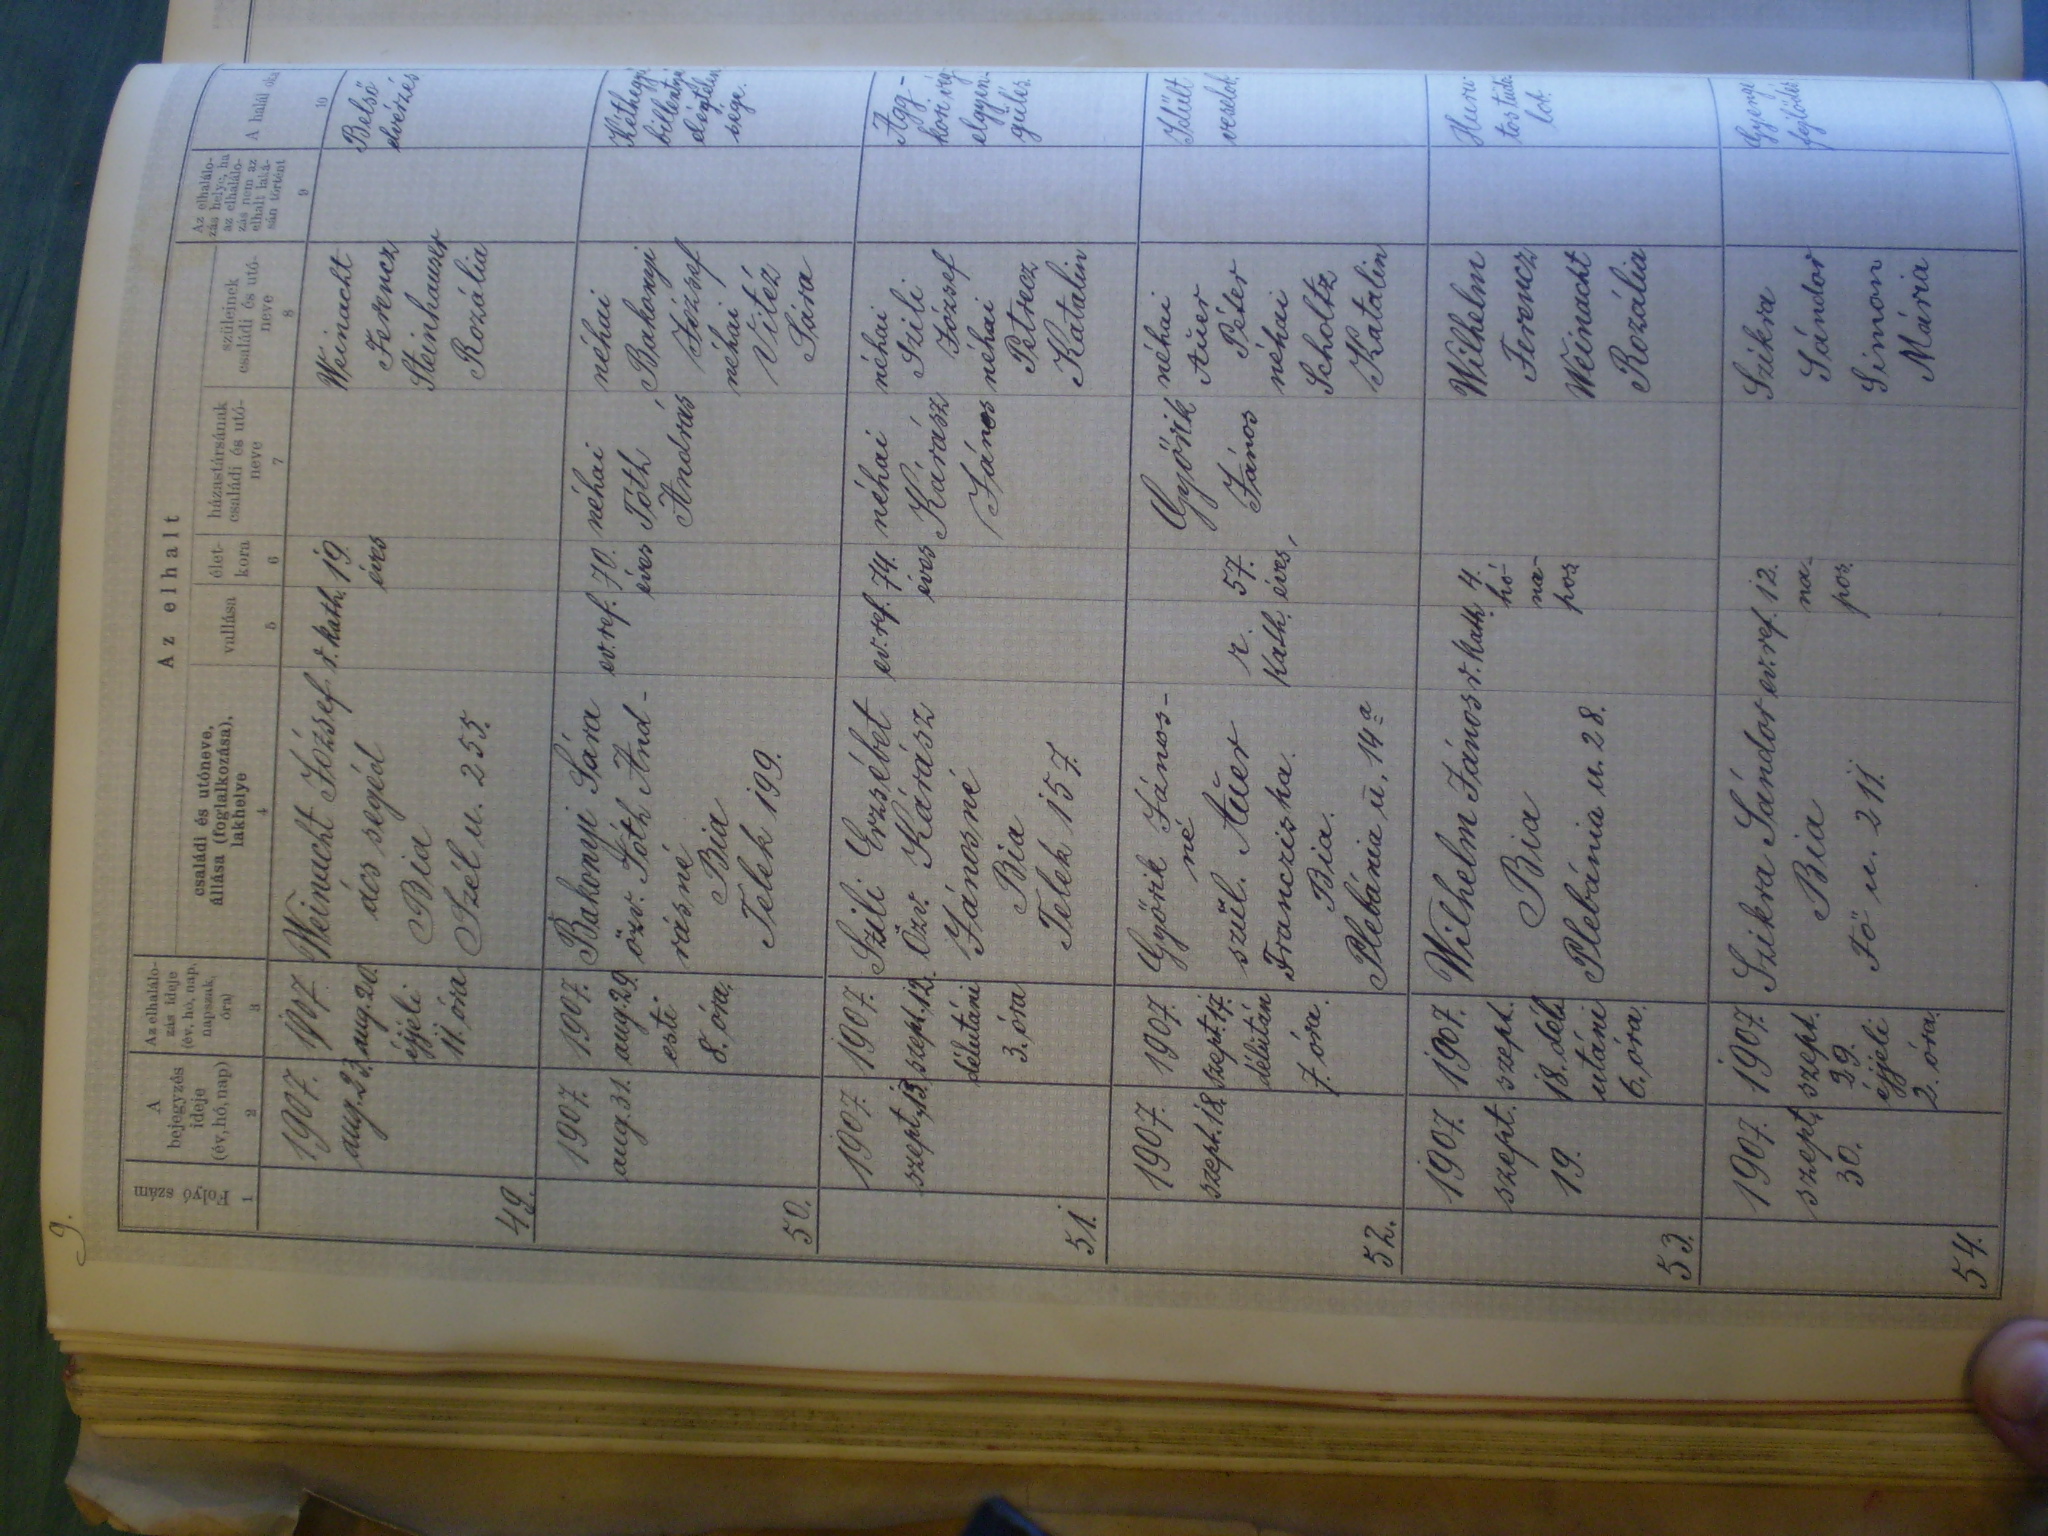 9.
Az elhalt
Folyó szám
A bejegyzés ideje (év, hó, nap)
Az elhalálo-
zás ideje
(év, hó, nap,
napszak,
óra)
családi és utóneve,
állása (foglalkozása),
lakhelye
vallása
élet-
kora
házastársának
családi és utó-
neve
szüleinek
családi és utó-
neve
Az elhalálo-
zás helye, ha
az elhaláló-
zás nem az
elhalt laká-
sán történt
A halál oka
1
2
3
4
5
6
7
8
9
10
49.
1907.
aug. 23.
1907.
aug. 20.
éjjeli
11. óra
Weinacht József
ács segéd
Bia
Szél u. 255.
r. kath.
19.
éves
Weinacht
Ferencz
Steinhauser
Rozália
Belső
elvérzés
50.
1907.
aug. 31.
1907.
aug. 29.
esti
8. óra.
Bakonyi Sára
özv. Tóth And-
rásné
Bia
Telek 199.
ev. ref.
70.
éves
néhai
Tóth
András
néhai
Bakonyi
József
néhai
Vitéz
Sára
Kéthegyű
billentyű
elégtelen
sége.
51.
1907.
szept. 13.
1907.
szept. 12.
délutáni
3. óra
Szili Erzsébet
Özv. Kárász
Jánosné
Bia
Telek 157.
ev. ref.
74.
éves
néhai
Kárász
János
néhai
Szili
József
néhai
Petrecz
Katalin
Agg-
kori vég
elgyen-
gülés.
52.
1907.
szept. 18.
1907.
szept. 17.
délután
7. óra.
Győrik János-
né
szül. Auer
Francziska.
Bia.
Plebánia u. 14 a
r.
kath.
57.
éves,
Győrik
János
néhai
Auer
Péter
néhai
Scholtz
Katalin
Idült
veselob.
53.
1907.
szept.
19.
1907.
szept.
18. dél
utáni
6. óra.
Wilhelm János
Bia
Plebánia u. 28.
r. kath.
4.
hó-
na-
pos
Wilhelm
Ferencz
Weinacht
Rozália
Huru-
tos tüdő
lob.
54.
1907.
szept.
30.
1907.
szept.
29.
éjjeli
2. óra.
Szikra Sándor
Bia
Fő u. 211.
ev. ref.
12.
na-
pos.
Szikra
Sándor
Simon
Mária
Gyenge
fejlődés